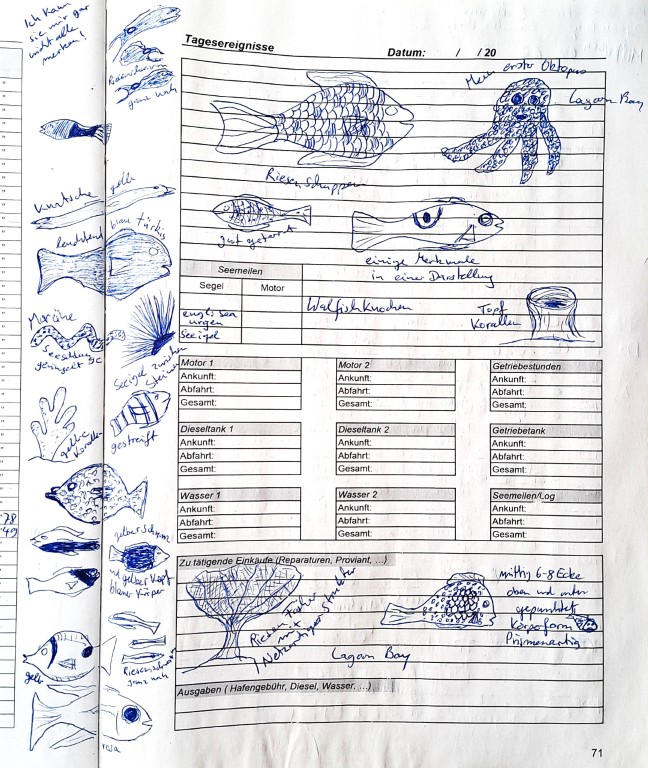 Ich kann
sie mir gar
nicht alle
merken!
Riesenschwarm
ganz nah
gelbe
blau türkis
leuchtend
Muräne
Seeschlange
geringelt
Seeigel zwischen
Steinen
gelbe
Korallen
gestreift
gelber Schwanz
und gelber Kopf
blauer Körper
Riesenschwarm
ganz nah
gelb
rosa
Tagesereignisse
Datum: / / 20
Mein erster Oktopus
Lagoon Bay
Riesen Schuppen
gut getarnt
einige Merkmale
in einer Darstellung
Seemeilen
Segel
Motor
Seeigel
Walfischknochen
Topf
Korallen
Motor 1
Ankunft:
Abfahrt:
Gesamt:
Motor 2
Ankunft:
Abfahrt:
Gesamt:
Getriebestunden
Ankunft:
Abfahrt:
Gesamt:
Dieseltank 1
Ankunft:
Abfahrt:
Gesamt:
Dieseltank 2
Ankunft:
Abfahrt:
Gesamt:
Getriebetank
Ankunft:
Abfahrt:
Gesamt:
Wasser 1
Ankunft:
Abfahrt:
Gesamt:
Wasser 2
Ankunft:
Abfahrt:
Gesamt:
Seemeilen/Log
Ankunft:
Abfahrt:
Gesamt:
Zu tätigende Einkäufe (Reparaturen, Proviant, ...)
Riesen Fächer
mit
Netzartiger Struktur
Lagoon Bay
mittig 6-8 Ecke
oben und unten
gepunktet
Körperform
Prismenartig
Ausgaben ( Hafengebühr, Diesel, Wasser, ...)
71